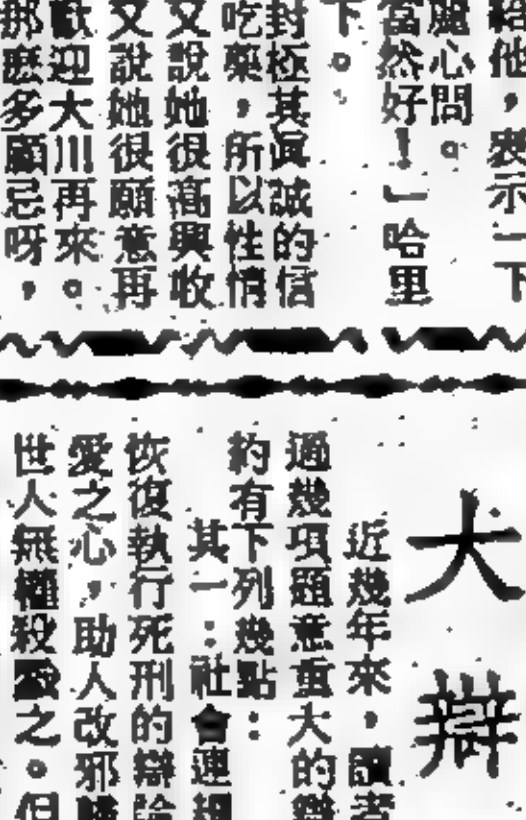 給他，表示一下
麗心問。
當然好！」哈里
下。
封極其眞誠的信
吃藥，所以性情
又說她很高興收
又說她很願意再
歡迎大川再來。
那麽多顧忌呀，
大辯
近幾年來，讀者
通幾項題意重大的辯
約有下列幾點：
其一：社會連
恢復執行死刑的辯論
愛之心，助人改邪
世人無權殺之。但